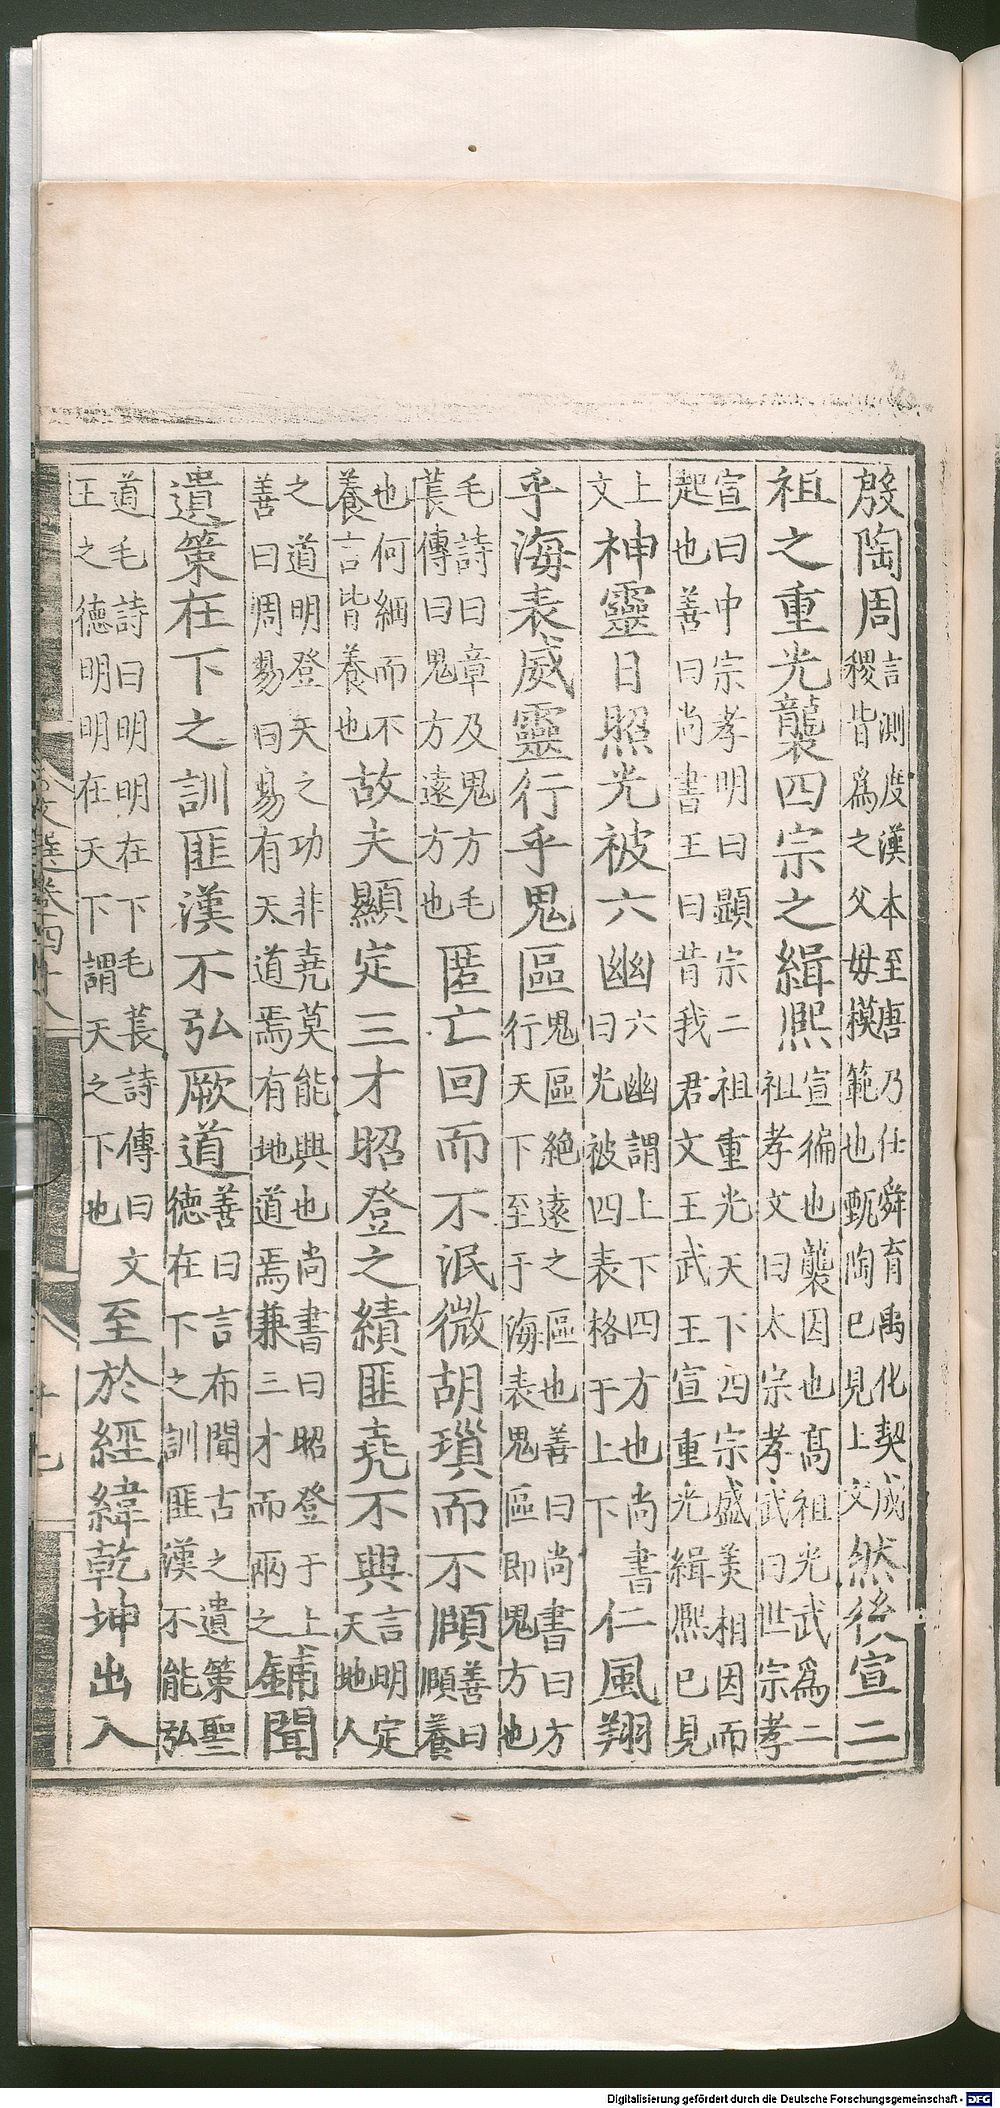 殷陶周言測度漢本至唐乃仕舜育禹化契成稷皆爲之父母模範也甄陶已見上文然後宣二
祖之重光襲四宗之緝熙宣徧也襲因也高祖光武爲二祖孝文曰太宗孝武曰世宗孝
宣曰中宗孝明曰顯宗二祖重光天下四宗盛美相因而起也善曰尚書王曰昔我君文王武王宣重光緝熙已見
上文神靈日照光被六幽六幽謂上下四方也尚書曰光被四表格于上下仁風翔
乎海表威靈行乎鬼區鬼區絶遠之區也善曰尚書曰方行天下至于海表鬼區即鬼方也
毛詩曰章及鬼方毛萇傳曰鬼方遠方也匿亡回而不泯微胡瑣而不頤善曰頤養
也何緬而不養言皆養也故夫顯定三才昭登之績匪堯不興言明定天地人
之道明登天之功非堯莫能興也尚書曰昭登于上善曰周易曰易有天道焉有地道焉兼三才而兩之鋪聞
遺策在下之訓匪漢不弘厥道善曰言布聞古之遺策聖德在下之訓匪漢不能弘
道毛詩曰明明在下毛萇詩傳曰文王之德明明在天下謂天之下也至於經緯乾坤出入
文選卷四十八
Digitalisierung gefördert durch die Deutsche Forschungsgemeinschaft - DFG